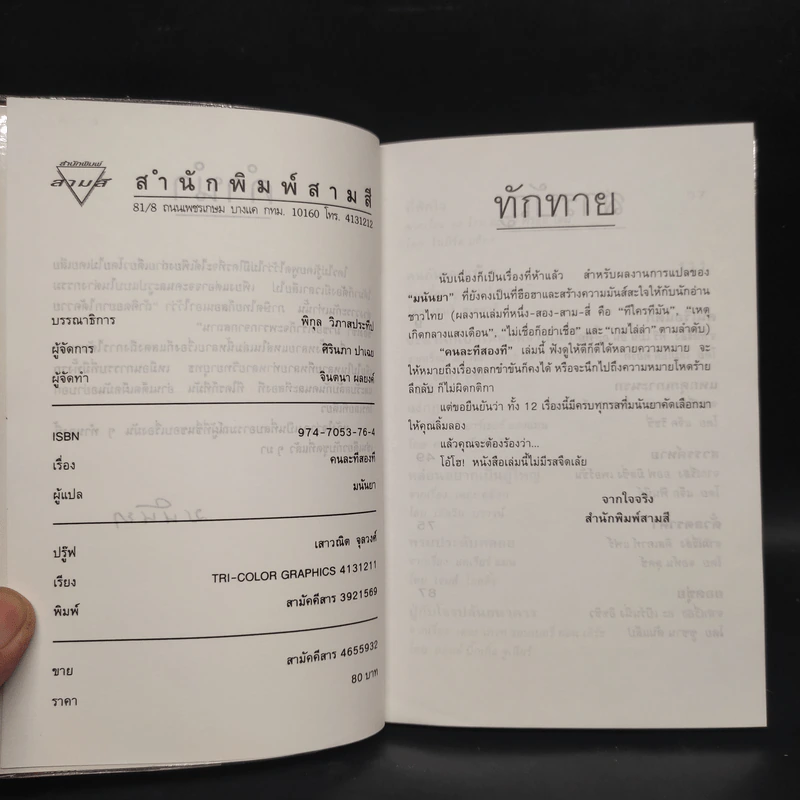 สำนักพิมพ์
สามสี
สำนักพิมพ์สามสี
81/8 ถนนเพชรเกษม บางแค กทม. 10160 โทร. 4131212
บรรณาธิการ พิกุล วิภาสประทีป
ผู้จัดการ ศิรินภา ปาเฉย
ผู้จัดทำ จินตนา ผลยงค์
ISBN 974-7053-76-4
เรื่อง คนละทีสองที
ผู้แปล มนันยา
ปรู๊ฟ เสาวณิต จุลวงศ์
เรียง TRI-COLOR GRAPHICS 4131211
พิมพ์ สามัคคีสาร 3921569
ขาย สามัคคีสาร 4655932
ราคา 80 บาท
ทักทาย
นับเนื่องก็เป็นเรื่องที่ห้าแล้ว สำหรับผลงานการแปลของ
"มนันยา" ที่ยังคงเป็นที่ฮือฮาและสร้างความมันส์สะใจให้กับนักอ่าน
ชาวไทย (ผลงานเล่มที่หนึ่ง-สอง-สาม-สี่ คือ "ทีใครทีมัน", "เหตุ
เกิดกลางแสงเดือน", "ไม่เชื่อก็อย่าเชื่อ" และ "เกมไล่ล่า" ตามลำดับ)
"คนละทีสองที" เล่มนี้ ฟังดูให้ดีก็ตีได้หลายความหมาย จะ
ให้หมายถึงเรื่องตลกขำขันก็คงได้ หรือจะนึกไปถึงความหมายโหดร้าย
ลึกลับ ก็ไม่ผิดกติกา
แต่ขอยืนยันว่า ทั้ง 12 เรื่องนี้มีครบทุกรสที่มนันยาคัดเลือกมา
ให้คุณลิ้มลอง
แล้วคุณจะต้องร้องว่า...
โอ้โฮ! หนังสือเล่มนี้ไม่มีรสจืดเล้ย
จากใจจริง
สำนักพิมพ์สามสี